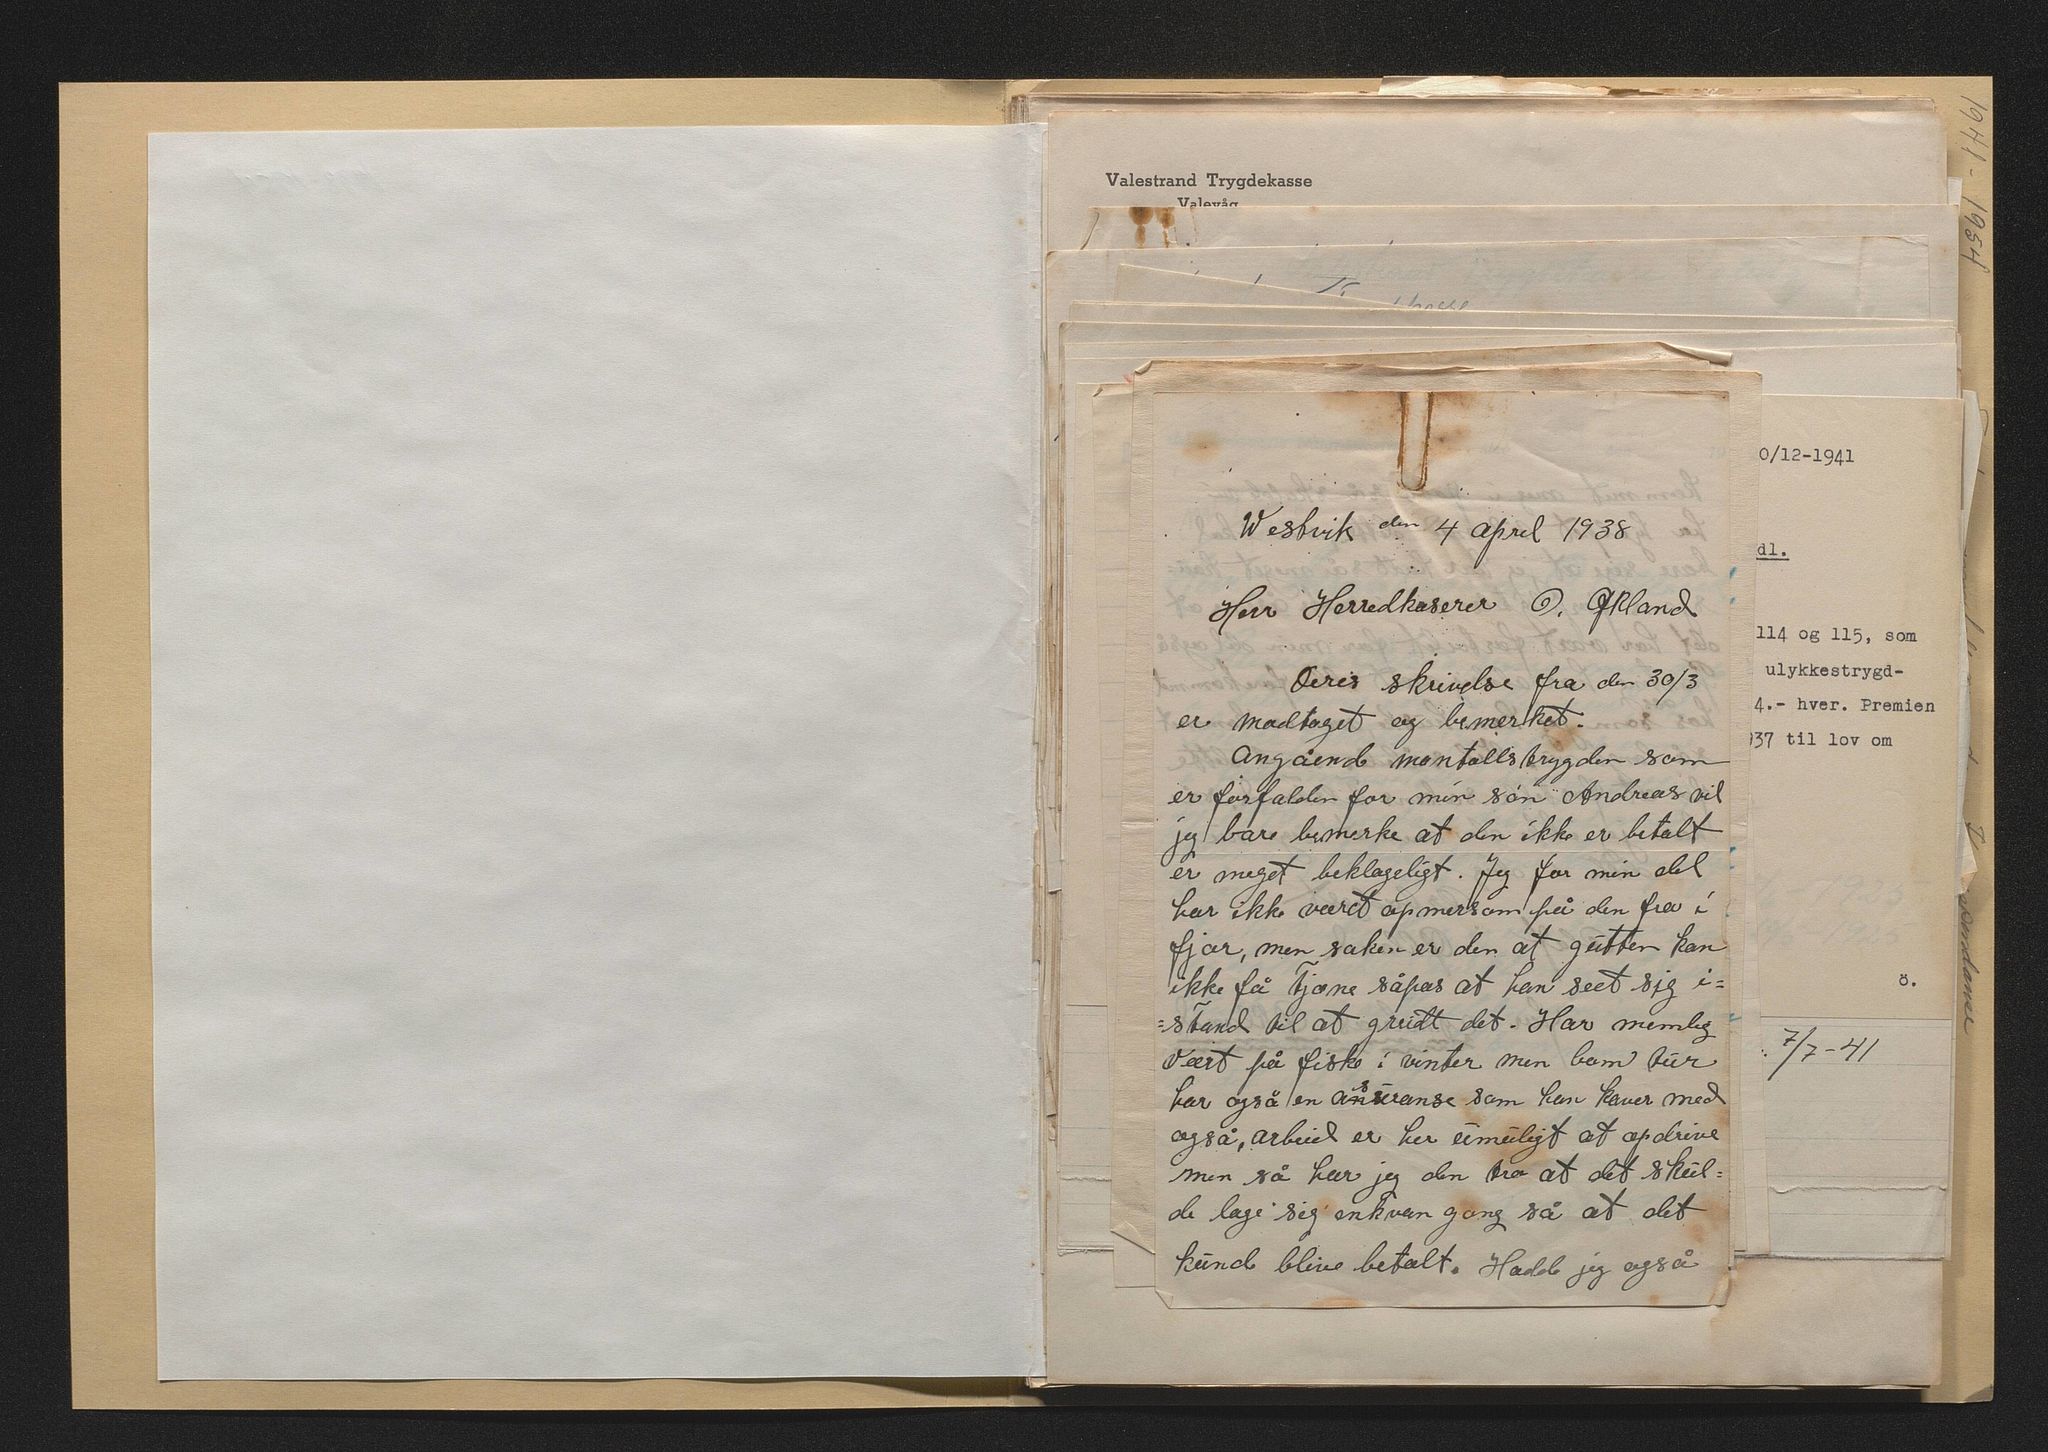 Valestrand Trygdekasse
Valevåg
1941-1954
0/12-1941
dl.
114 og 115, som
ulykkestrygd-
4.- hver. Premien
937 til lov om
ö.
7/7-41
Westvik den 4 april 1938
Herr Herredkaserer O. Økland
Deres skrivelse fra den 30/3
er modtaget og bemerket.
Angåend montallstrygden som
er forfalden for min sön Andreas vil
jeg bare bemerke at den ikke er betalt
er meget beklageligt. Jeg for min del
har ikke været opmersom på den fra i
fjor, men saken er den at gutten kan
ikke få tjene såpas at han seet sig i=
=stand til at greidt det. Har nemlig
vært på fiske i vinter men bom tur
har også en assuranse som han kaver med
også, arbeid er her umuligt at opdrive
men så har jeg den tro at det skul=
de lage sig enkvan gang så at det
kund blive betalt. Hadde jeg også